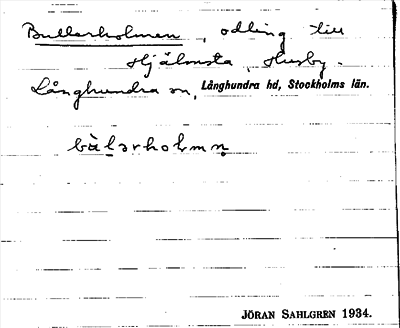 Bullerholmen, odling till
Hjälmsta, Husby-
Långhundra sn, Långhundra hd, Stockholms län.
bälərholmn̥
JÖRAN SAHLGREN 1934.